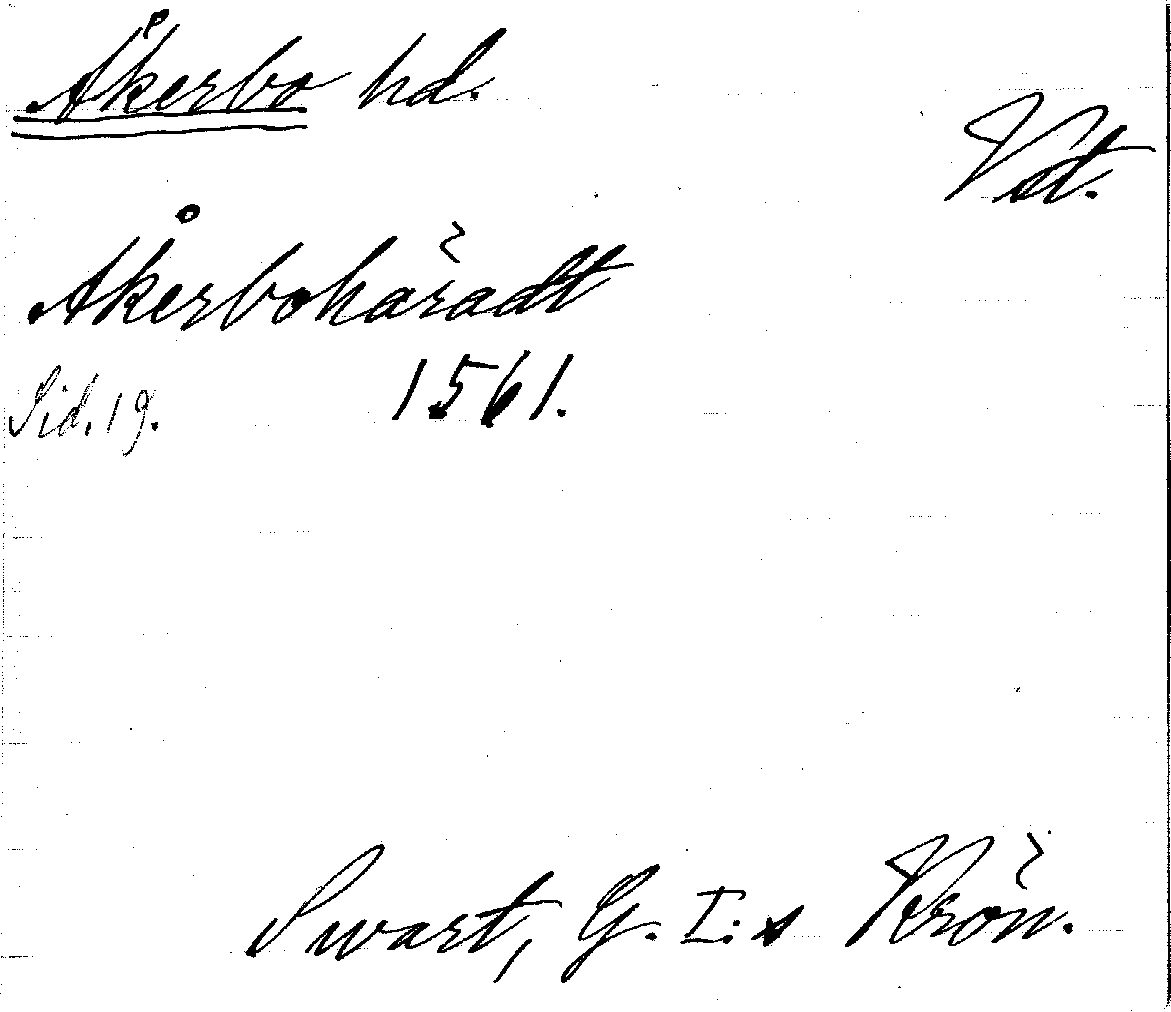 Åkerbo hd.
Vst.
Åkerbohäradt
1561.
Sid. 19.
Swart, G. I:s Krön.